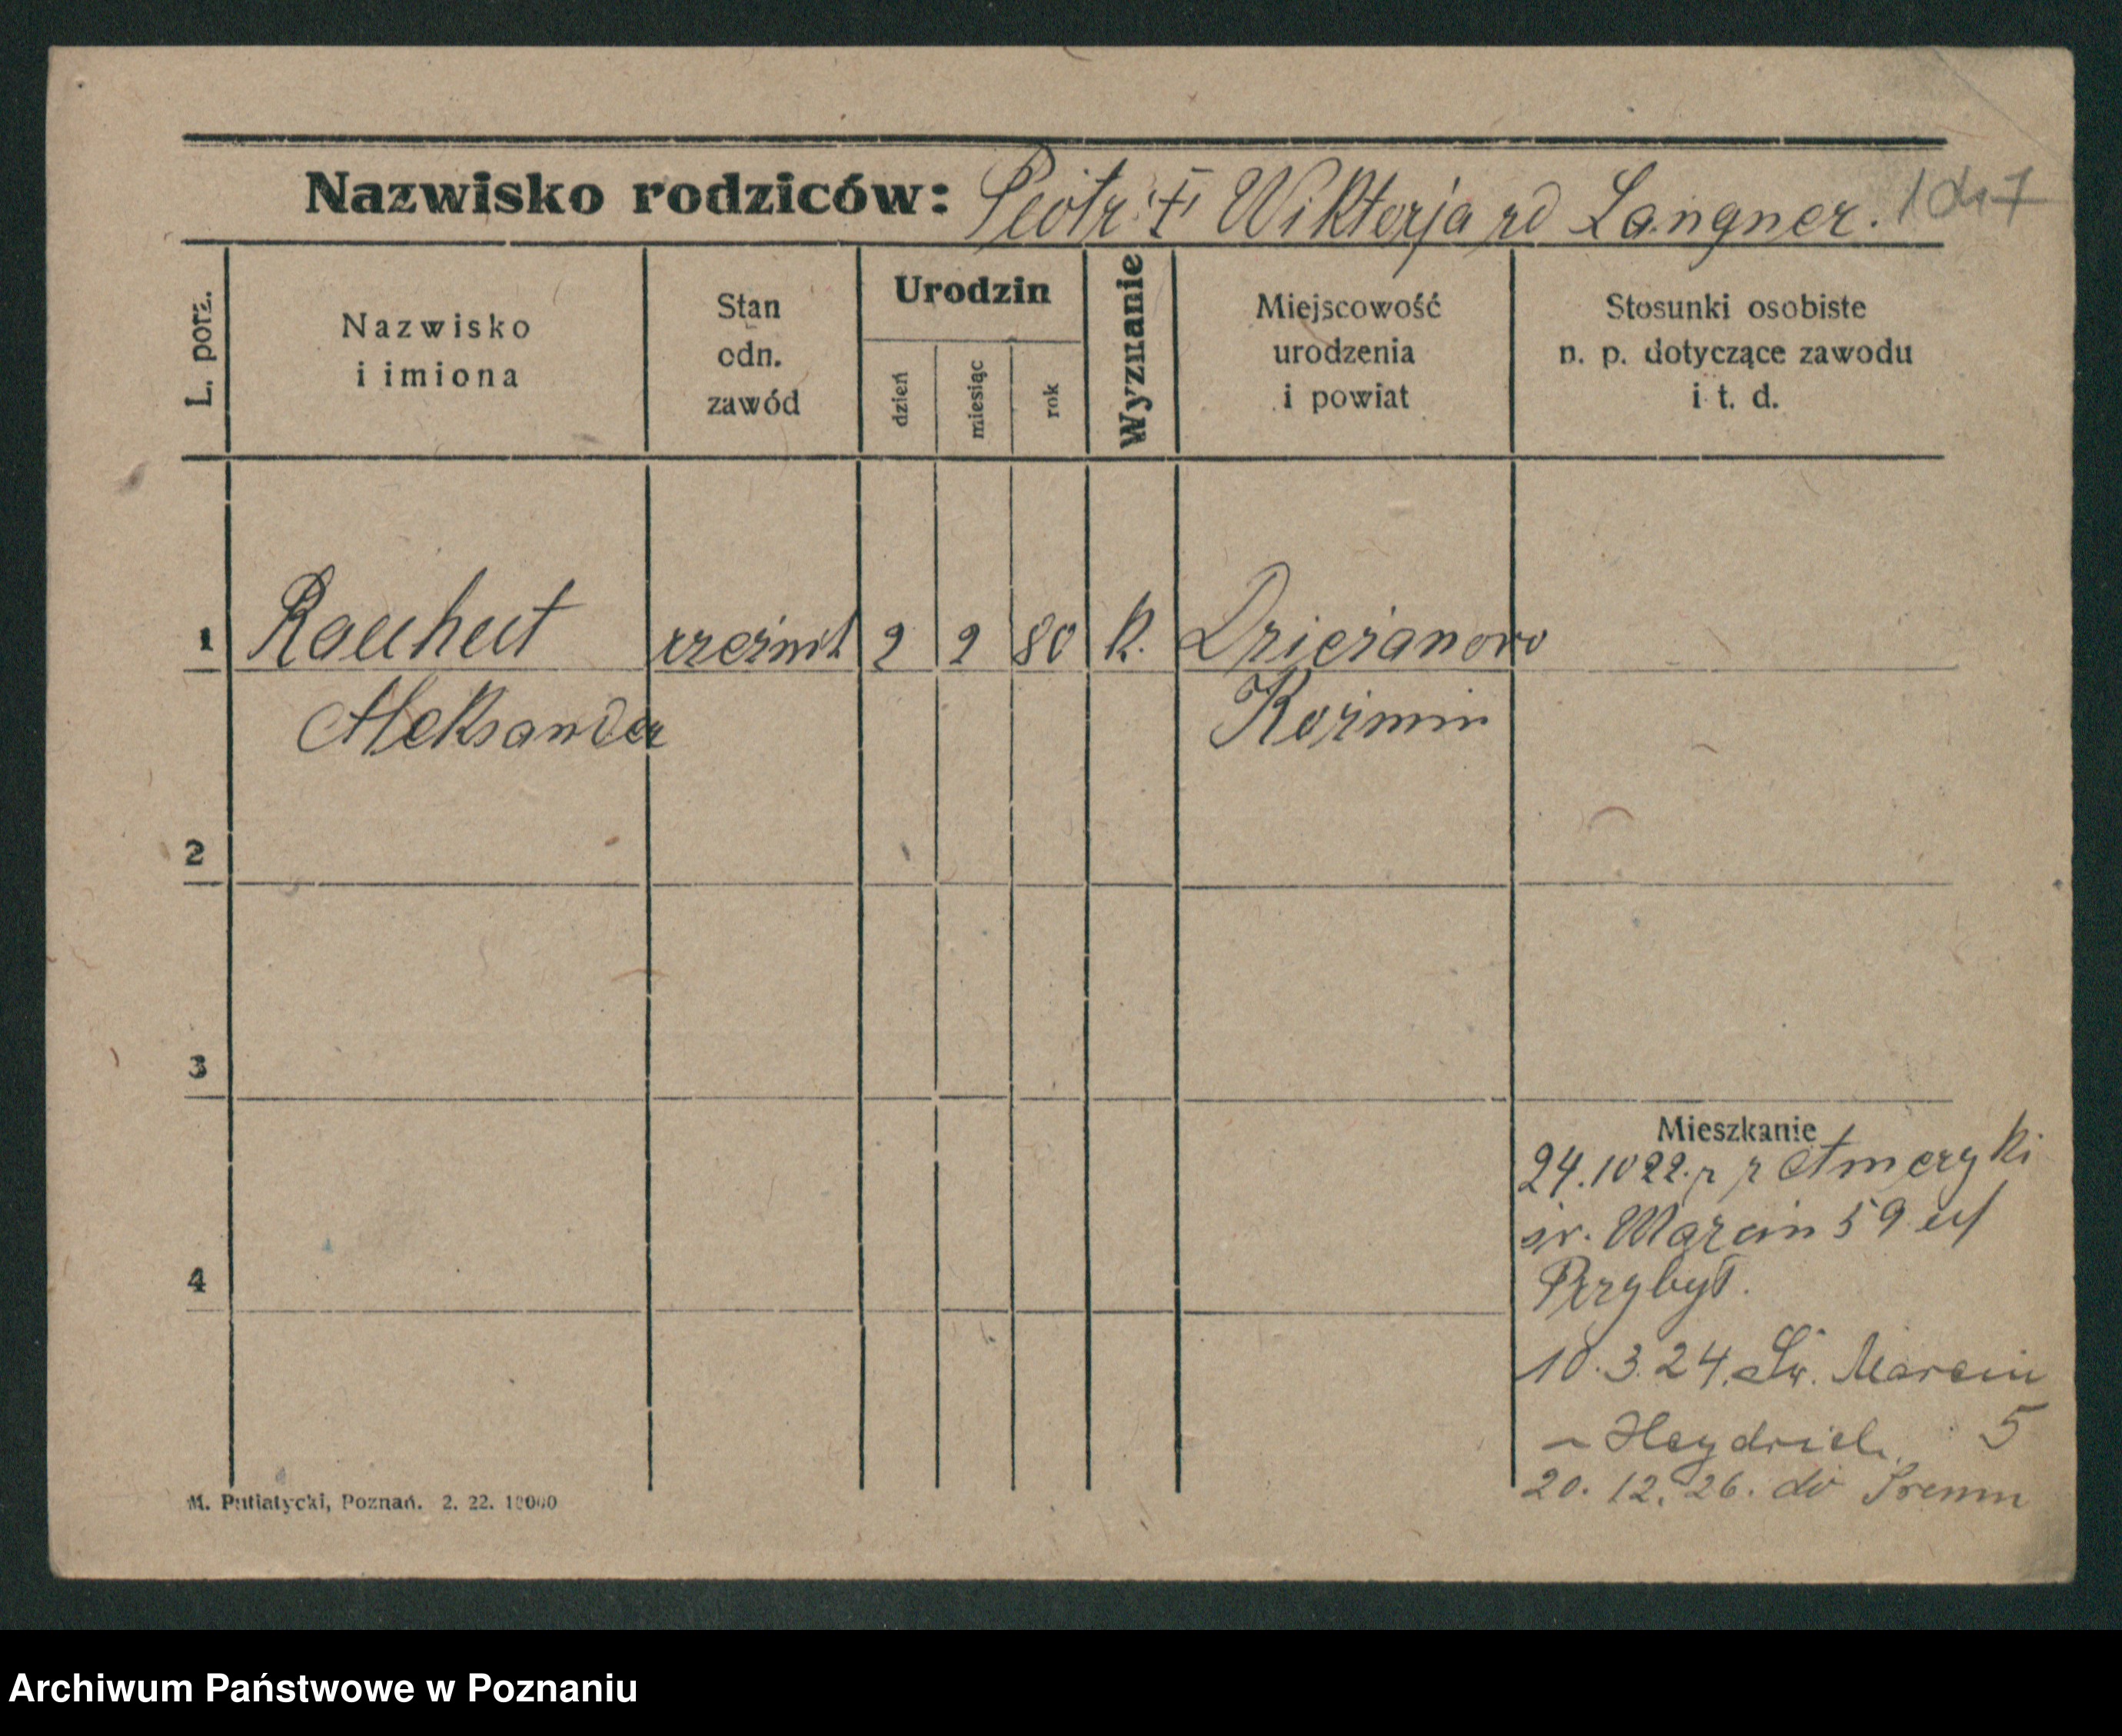 Nazwisko rodziców: Piotr ‡ Wiktorja rd Langner.
L. porz.
Nazwisko
i imiona
Stan
odn.
zawód
Urodzin
dzień
miesiąc
rok
Wyznanie
Miejscowość
urodzenia
i powiat
Stosunki osobiste
n. p. dotyczące zawodu
i t. d.
1 Rauhut rzeźnik 2 2 80 K. Dzierżanowo
Aleksander Koźmin
2
3
4
Mieszkanie
24.10 22. z Ameryki
św. Marcin 59 u/
Przybył.
10.3.24. Św. Marcin
– Heydrich 5
20. 12. 26. do Śremu
M. Putiatycki, Poznań. 2. 22. 10000
Archiwum Państwowe w Poznaniu